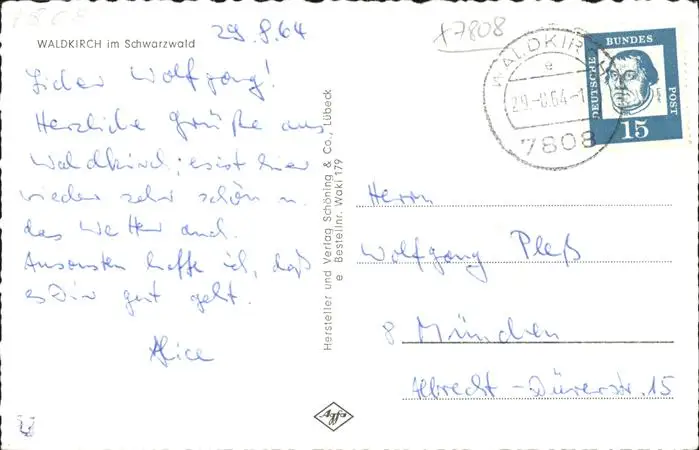 WALDKIRCH im Schwarzwald
29.8.64
Lieber Wolfgang!
Herzliche Grüße aus
Waldkirch; es ist hier
wieder sehr schön u.
das Wetter auch.
Ansonsten hoffe ich, daß
es Dir gut geht.
Alice
Hersteller und Verlag Schöning & Co., Lübeck
e Bestellnr. Waki 179
Agfa
+7808
WALDKIRCH
e
29.-8.64-1
7808
DEUTSCHE BUNDESPOST
Luther
15
Herrn
Wolfgang Pleß
8 München
Albrecht-Dürerstr. 15